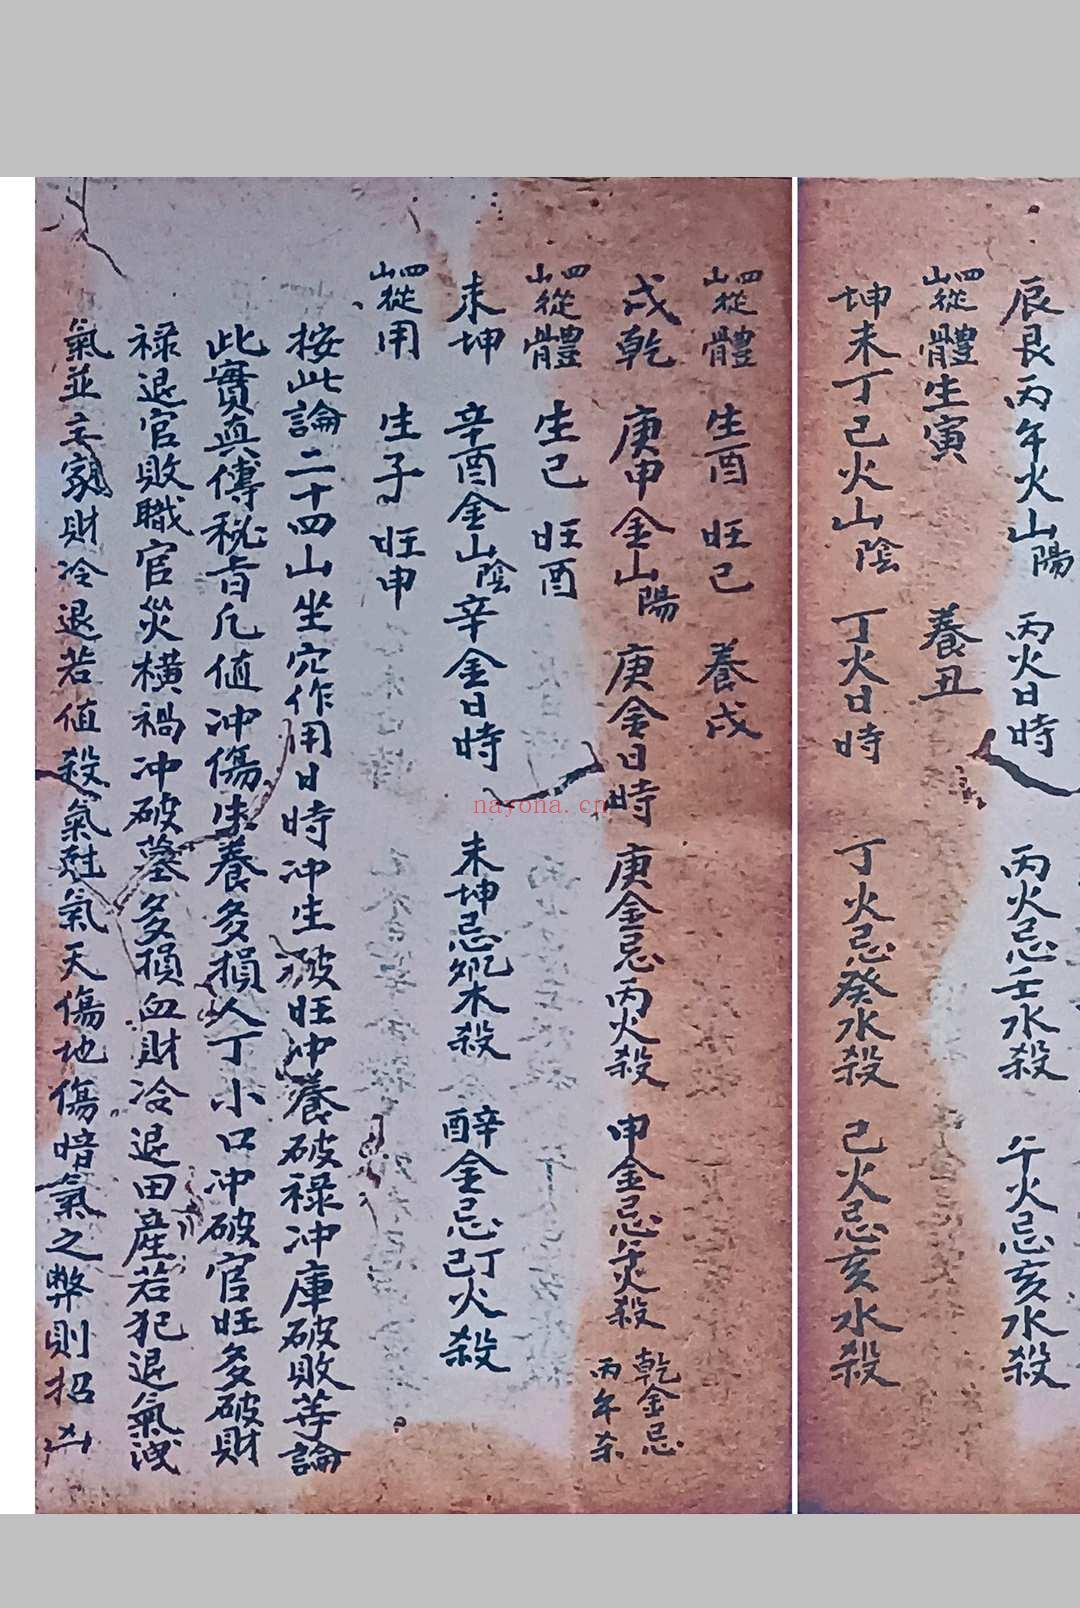 辰艮丙午火山陽 丙火日時 丙火忌壬水殺 午火忌亥水殺
四山從體生寅 養丑
坤未丁己火山陰 丁火日時 丁火忌癸水殺 己火忌亥水殺
四山從體 生酉 旺己 養戌
戌乾 庚申金山陽 庚金日時 庚金忌丙火殺 申金忌午火殺 乾金忌丙午杀
四山從體 生己 旺酉
未坤 辛酉金山陰 辛金日時 未坤忌 木殺 辛酉金忌丁己火殺
四山從用 生子 旺申
按此論二十四山坐穴作用日時沖生破旺沖養破祿沖庫破敗等論
此實真傳秘旨凡值沖傷生養多損人丁小口沖破官旺多破財
祿退官敗職官災橫禍沖破墓多損血財冷退田産若犯退氣洩
氣並主家財冷退若值殺氣尅氣天傷地傷暗氣之弊則招凶
nayona.cn